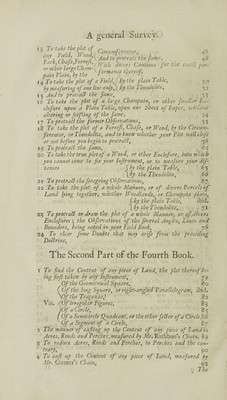 A general Survey.
13 To take the plot of
any Field, Wood,
Park, Chase, Forrest,
or other large Cham-
pain Plain, by the
Circumferentor, 48
And to protract the same, 48
With divers Cautions for the exact per-
formance thereof,
14 To take the plot of a Field, by the plain Table, 50
by measuring of one line only, by the Theodolite, 51
15 And to protract the same,
16 To take the plot of a large Champain, or other smaller En-
closure upon a Plain Table, upon one Sheet of Paper, without
altering or shifting of the same, 54
17 To protract the former Observations,
18 To take the plot of a Forest, Chase, or Wood, by the Circum-
ferentor, or Theodolite, and to know whether your Plot will close
or not before you begin to protract, 56
19 To protract the same, 61
20 To take the true plot of a Wood, or other Enclosure, into which
you cannot come to see your Instrument, or to measure your dist-
ances by the plain Table, 65
by the Theodolite, 66
21 To protract the foregoing Observations, 67
22 To take the plot, of a whole Mannor, or of divers Parcels of
Land lying together, whether Woodlands, or Champain plains,
by the plain Table, ibid.
by the Theodolite, 71
23 To protract or draw the plot of a whole Mannor, or of divers
Enclosures; the Observations of the several Angles, Lines and
Bounders, being noted in your Field Book, 76
24 To clear some Doubts that may arise from the preceding
Doctrine,
The Second Part of the Fourth Book.
1 To find the Content of any piece of Land, the plot thereof be-
ing first taken by any Instrument, 79
Of the Geometrical Square, 80
Of the long Square, or right-angled Parallelogram, ibid.
Of the Trapezia, 82
Viz. Of irregular Figures, 83
Of a Circle, 85
Of a Semicircle Quadrant, or the other sector of a Circle 86
Of a Segment of a Circle, 87
2 The manner of casting up the Content of any piece of Land in
Acres, Roods and Perches, measured by Mr. Rathburn's Chain, 89
3 To reduce Acres, Roods and Perches, to Perches and the con-
trary, 90
4 To cast up the Content of any piece of Land, measured by
Mr. Gunter's Chain,
The